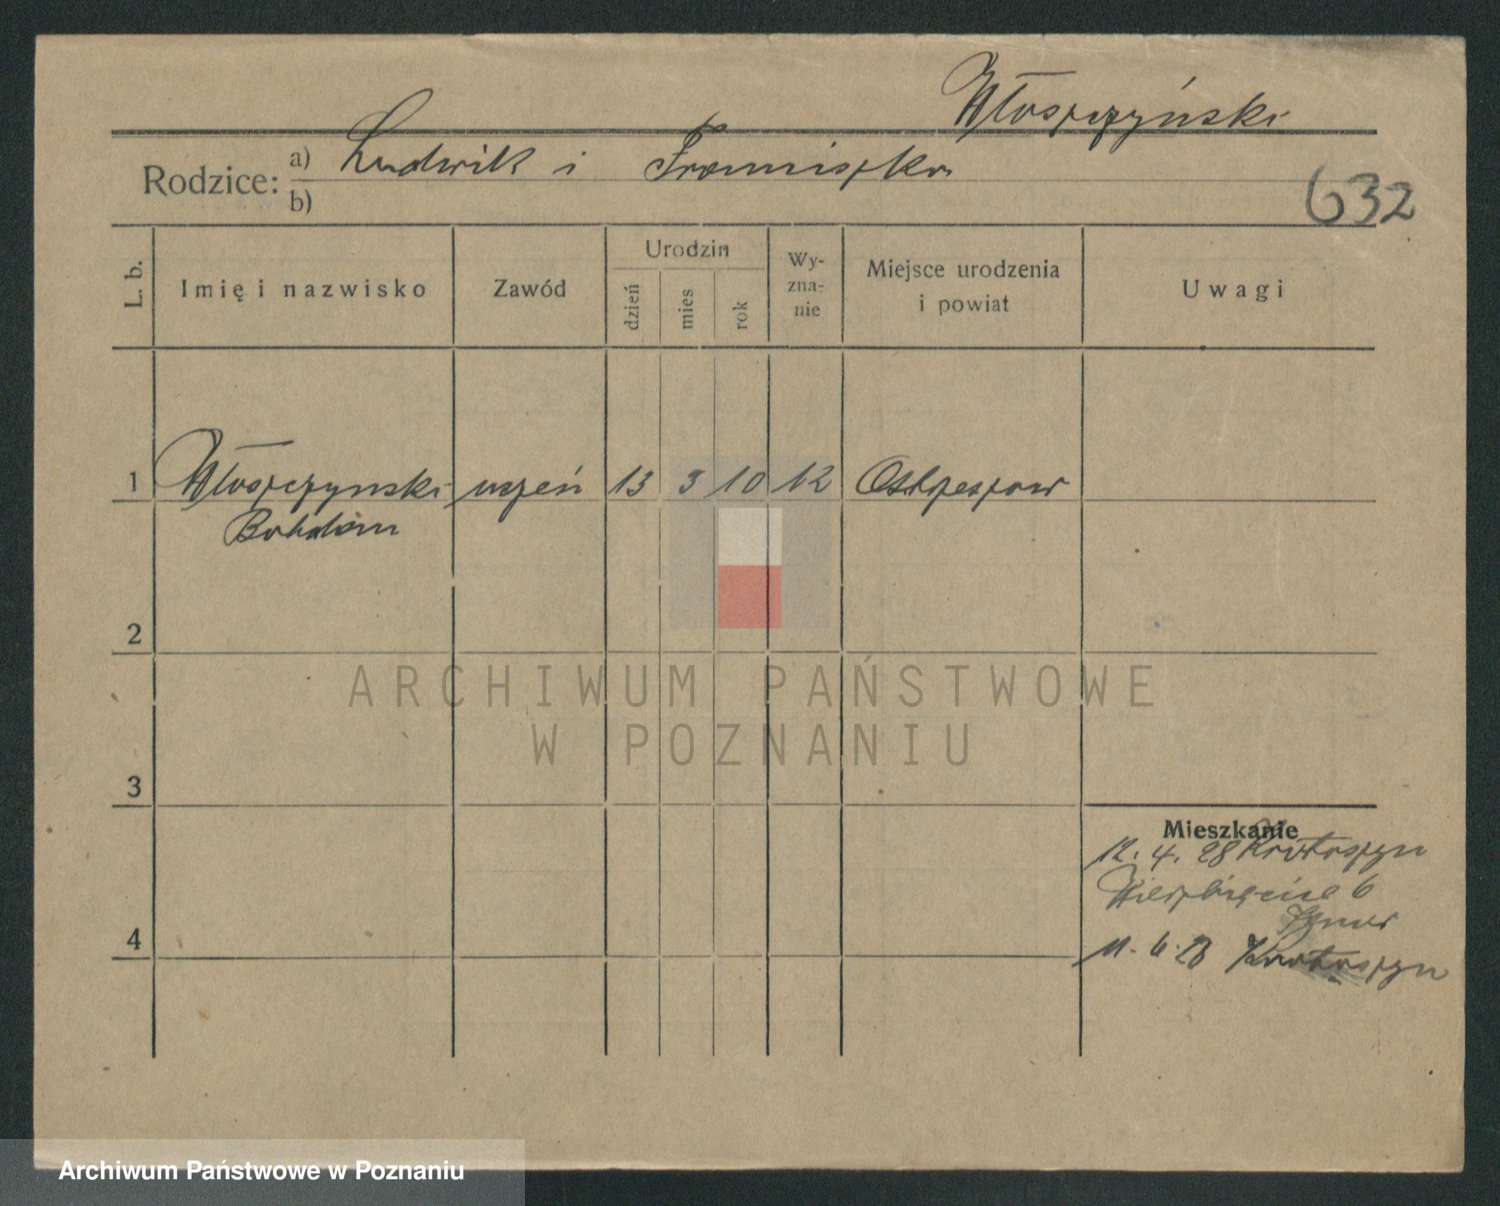 Włoszczyński
Rodzice: a) Ludwik i Franciszka
b)
632
L. b. Imię i nazwisko Zawód Urodzin dzień mies rok Wyznanie Miejsce urodzenia i powiat Uwagi
1 Włoszczynski uczeń 13 3 10 Ostrzeszow
Bohdan
2
ARCHIWUM PAŃSTWOWE
W POZNANIU
3
Mieszkanie
12. 4. 28 Krotoszyn
Wierzbięcice 6
4
11. 6. 28 Krotoszyn
Archiwum Państwowe w Poznaniu